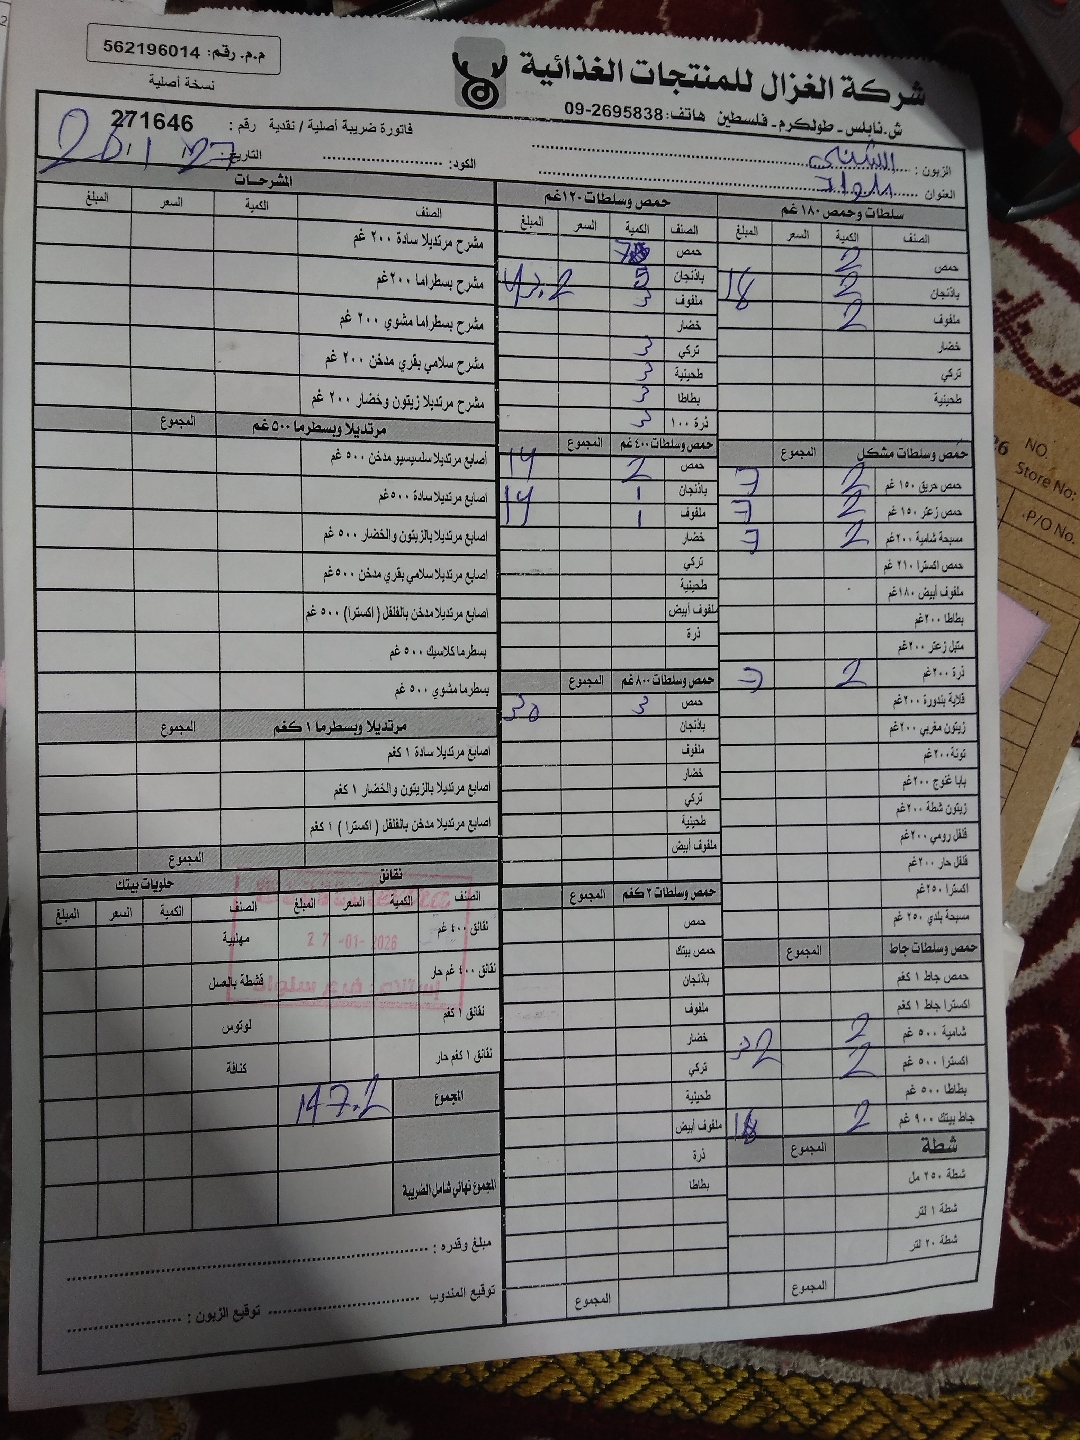 شركة الغزال للمنتجات الغذائية
ش.نابلس - طولكرم - فلسطين هاتف: 09-2695838
م.م. رقم: 562196014
نسخة أصلية
فاتورة ضريبة أصلية / نقدية رقم : 271646
الزبون :
العنوان :
الكود: التاريخ:
سلطات وحمص ١٨٠ غم
الصنف الكمية السعر المبلغ
حمص 2
باذنجان 2 18
ملفوف 2
خضار
تركي
طحينية
حمص وسلطات مشكل المجموع
حمص حريق ١٥٠ غم 2 7
حمص زعتر ١٥٠ غم 2 7
مسبحة شامية ٢٠٠غم 2 7
حمص اكسترا ٢١٠ غم
ملفوف أبيض ١٨٠غم
بطاطا ٢٠٠غم
متبل زعتر ٢٠٠غم
ذرة ٢٠٠غم 2 7
قلاية بندورة ٢٠٠غم
زيتون مغربي ٢٠٠غم
تونة ٢٠٠غم
بابا غنوج ٢٠٠غم
زيتون شطة ٢٠٠غم
فلفل رومي ٢٠٠غم
فلفل حار ٢٠٠غم
اكسترا ٢٥٠غم
مسبحة بلدي ٢٥٠ غم
حمص وسلطات جاط المجموع
حمص جاط ١ كغم
اكسترا جاط ١ كغم
شامية ٥٠٠ غم 2
اكسترا ٥٠٠ غم 2 32
بطاطا ٥٠٠ غم
جاط بيتك ٩٠٠ غم 2
شطة المجموع
شطة ٢٥٠ مل
شطة ١ لتر
شطة ٢٠ لتر
المجموع
حمص وسلطات ١٢٠غم
الصنف الكمية السعر المبلغ
حمص
باذنجان 5 43.2
ملفوف 3
خضار
تركي 3
طحينية 3
بطاطا 3
ذرة ١٠٠ 3
حمص وسلطات ٤٠٠ غم المجموع
حمص 2 14
باذنجان 1 14
ملفوف 1
خضار
تركي
طحينية
ملفوف أبيض
ذرة
حمص وسلطات ٨٠٠ غم المجموع
حمص 3 30
باذنجان
ملفوف
خضار
تركي
طحينية
ملفوف أبيض
حمص وسلطات ٢ كغم المجموع
حمص
حمص بيتك
باذنجان
ملفوف
خضار
تركي
طحينية
ملفوف أبيض
ذرة
بطاطا
المجموع
المشرحات
الصنف الكمية السعر المبلغ
مشرح مرتديلا سادة ٢٠٠ غم
مشرح بسطراما ٢٠٠غم
مشرح بسطراما مشوي ٢٠٠ غم
مشرح سلامي بقري مدخن ٢٠٠ غم
مشرح مرتديلا زيتون وخضار ٢٠٠ غم
مرتديلا وبسطرما ٥٠٠ غم المجموع
أصابع مرتديلا سلسيسيو مدخن ٥٠٠ غم
اصابع مرتديلا سادة ٥٠٠غم
اصابع مرتديلا بالزيتون والخضار ٥٠٠ غم
اصابع مرتديلا سلامي بقري مدخن ٥٠٠غم
اصابع مرتديلا مدخن بالفلفل ( اكسترا ) ٥٠٠ غم
بسطرما كلاسيك ٥٠٠ غم
بسطرما مشوي ٥٠٠ غم
مرتديلا وبسطرما ١ كغم المجموع
اصابع مرتديلا سادة ١ كغم
اصابع مرتديلا بالزيتون والخضار ١ كغم
اصابع مرتديلا مدخن بالفلفل ( اكسترا ) ١ كغم
المجموع
نقانق
الصنف الكمية السعر المبلغ
نقانق ٤٠٠ غم
نقانق ٤٠٠ غم حار
نقانق ١ كغم
نقانق ١ كغم حار
حلويات بيتك
الصنف الكمية السعر المبلغ
مهلبية
قشطة بالعسل
لوتوس
كنافة
27 -01- 2026
المجموع 147.2
المجموع نهائي شامل الضريبة
مبلغ وقدره :
توقيع المندوب توقيع الزبون :
NO.
Store No:
P/O No.